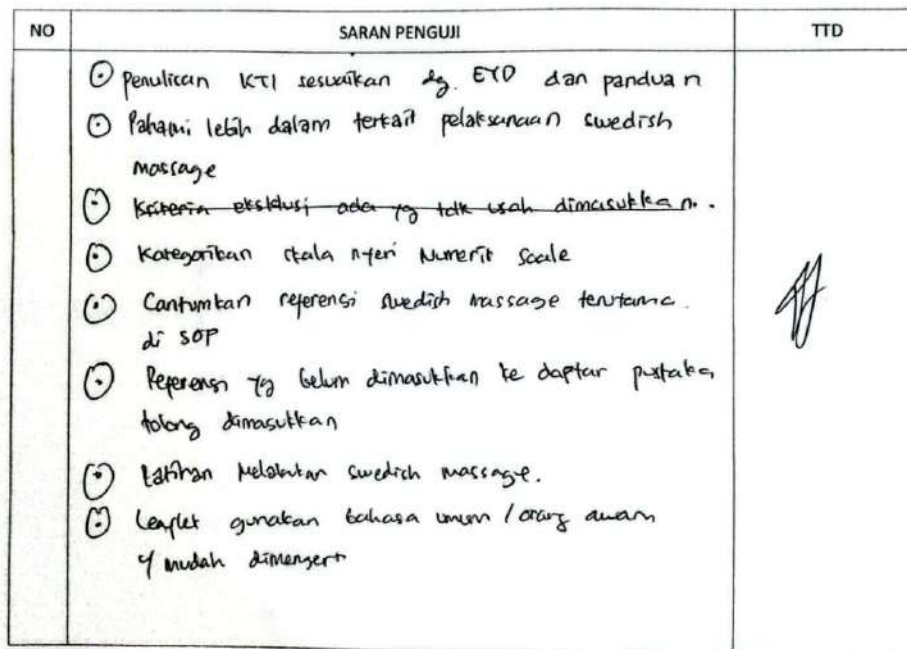 NO SARAN PENGUJI TTD
Penulisan KTI sesuaikan dg. EYD dan panduan
Pahami lebih dalam terkait pelaksanaan swedish
massage
Kriteria eksklusi ada yg tdk usah dimasukkan..
Kategorikan skala nyeri Numerik Scale
Cantumkan referensi swedish massage terutama.
di SOP
Referensi yg belum dimasukkan ke daptar pustaka
tolong dimasukkan
Latihan Melakukan swedish massage.
Leaflet gunakan bahasa umum / orang awam
y/ mudah dimengerti